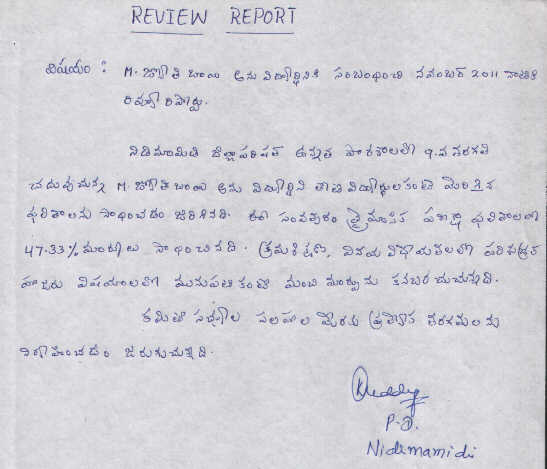 REVIEW REPORT
విషయం : M. జ్యోతి బాయి అను విద్యార్థినికి సంబంధించి నవంబర్ 2011 నాటికి
రివ్యూ రిపోర్టు.
నిడిమామిడి జిల్లా పరిషత్ ఉన్నత పాఠశాలలో 9 వ తరగతి
చదువుచున్న M. జ్యోతి బాయి అను విద్యార్థిని తోటి విద్యార్థులకంటే మెరుగైన
ఫలితాలను సాధించడం జరిగినది. ఈ సంవత్సరం త్రైమాసిక పరీక్షా ఫలితాలలో
47.33% మార్కులు సాధించినది. క్రమశిక్షణ, వినయ విధేయతలలో
హాజరు విషయాలలో మునుపటి కంటే మంచి మార్పును కనబరచుచున్నది.
కమిటీ సభ్యుల సలహాల మేరకు ప్రత్యేక తరగతులను
నిర్వహించడం జరుగుచున్నది.
P.D.
Nidimamidi